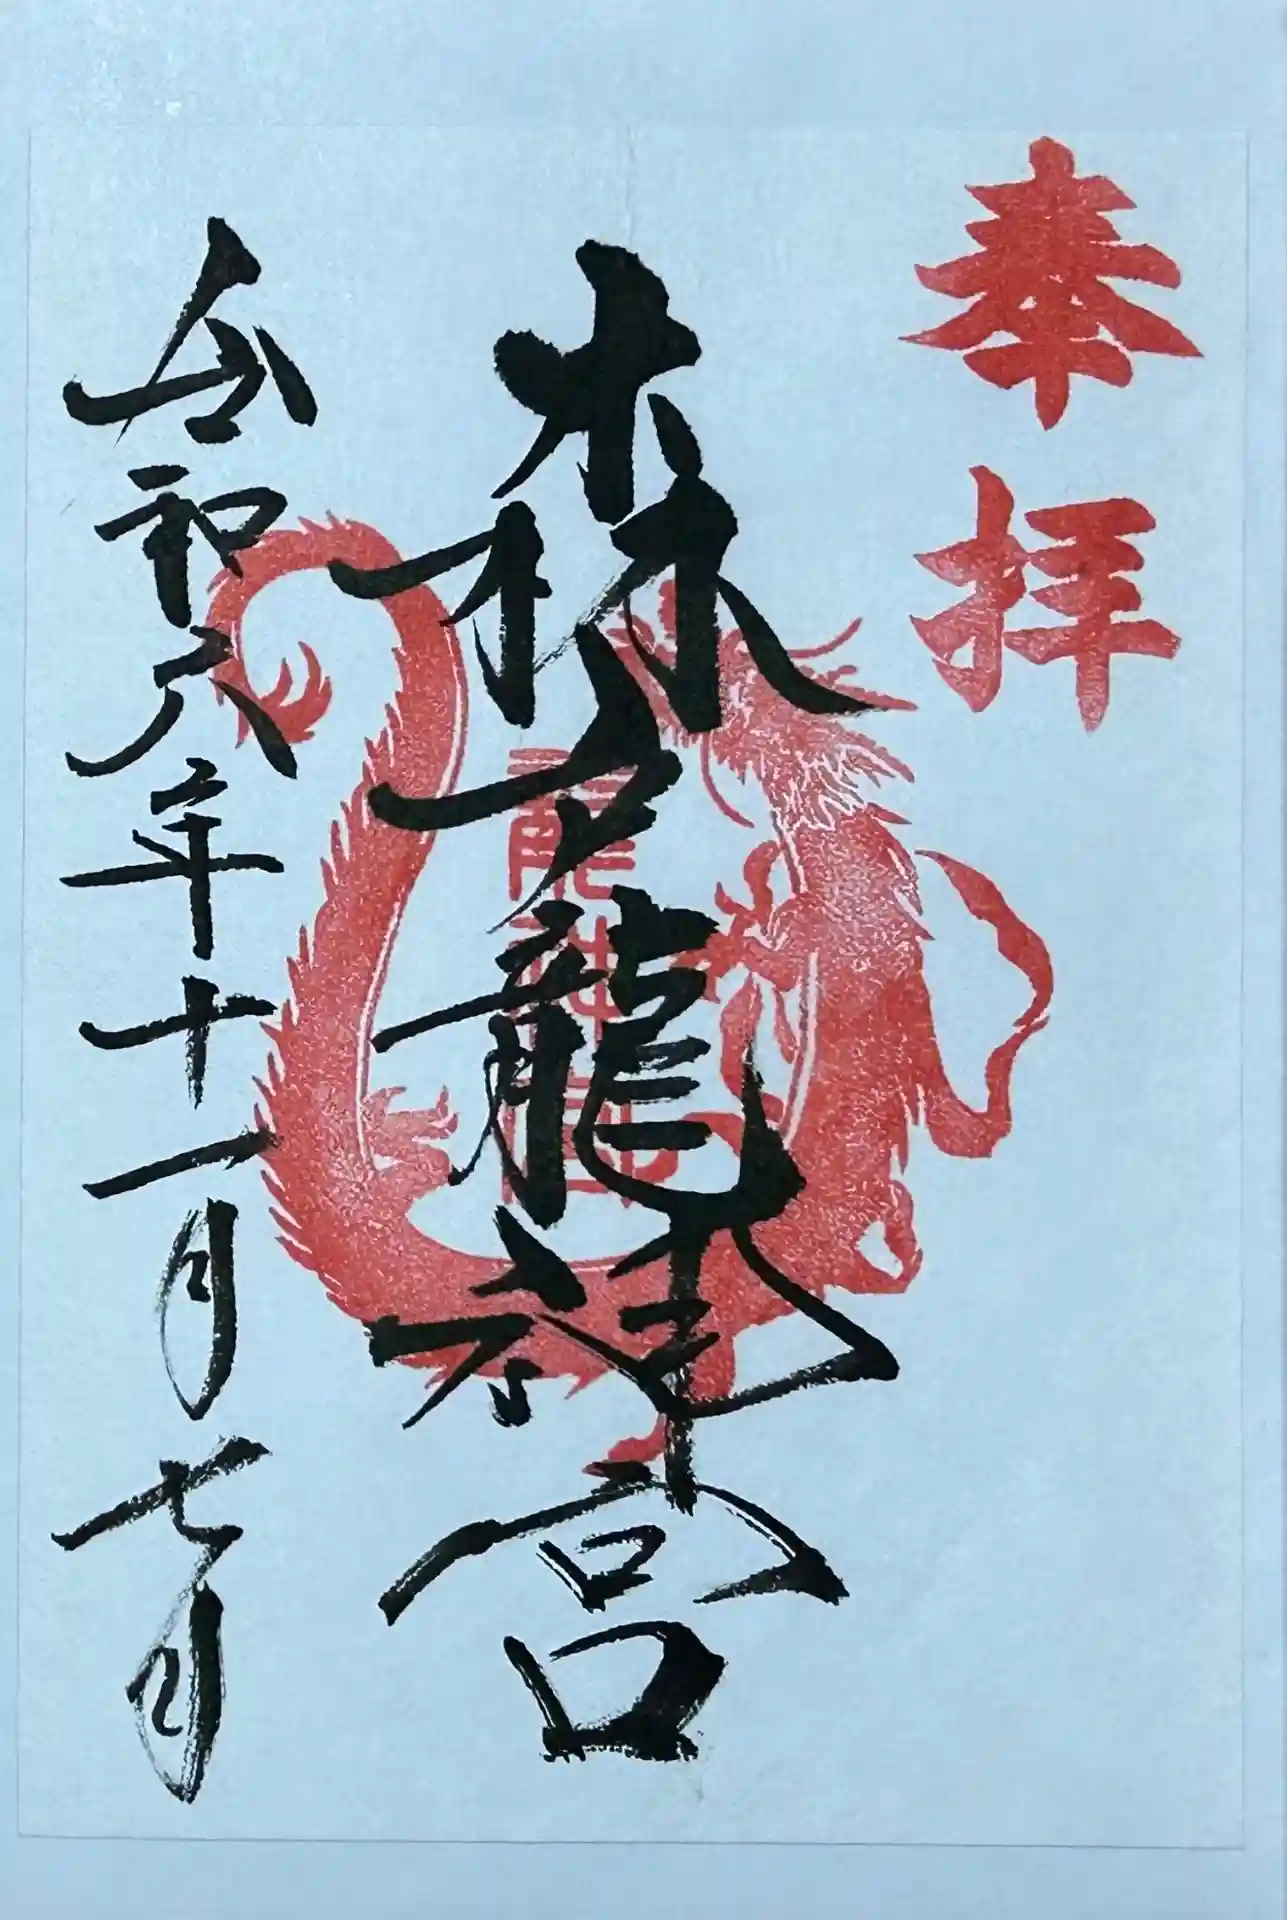 奉拝
森戸龍神宮
龍神宮
令和六年十一月七日